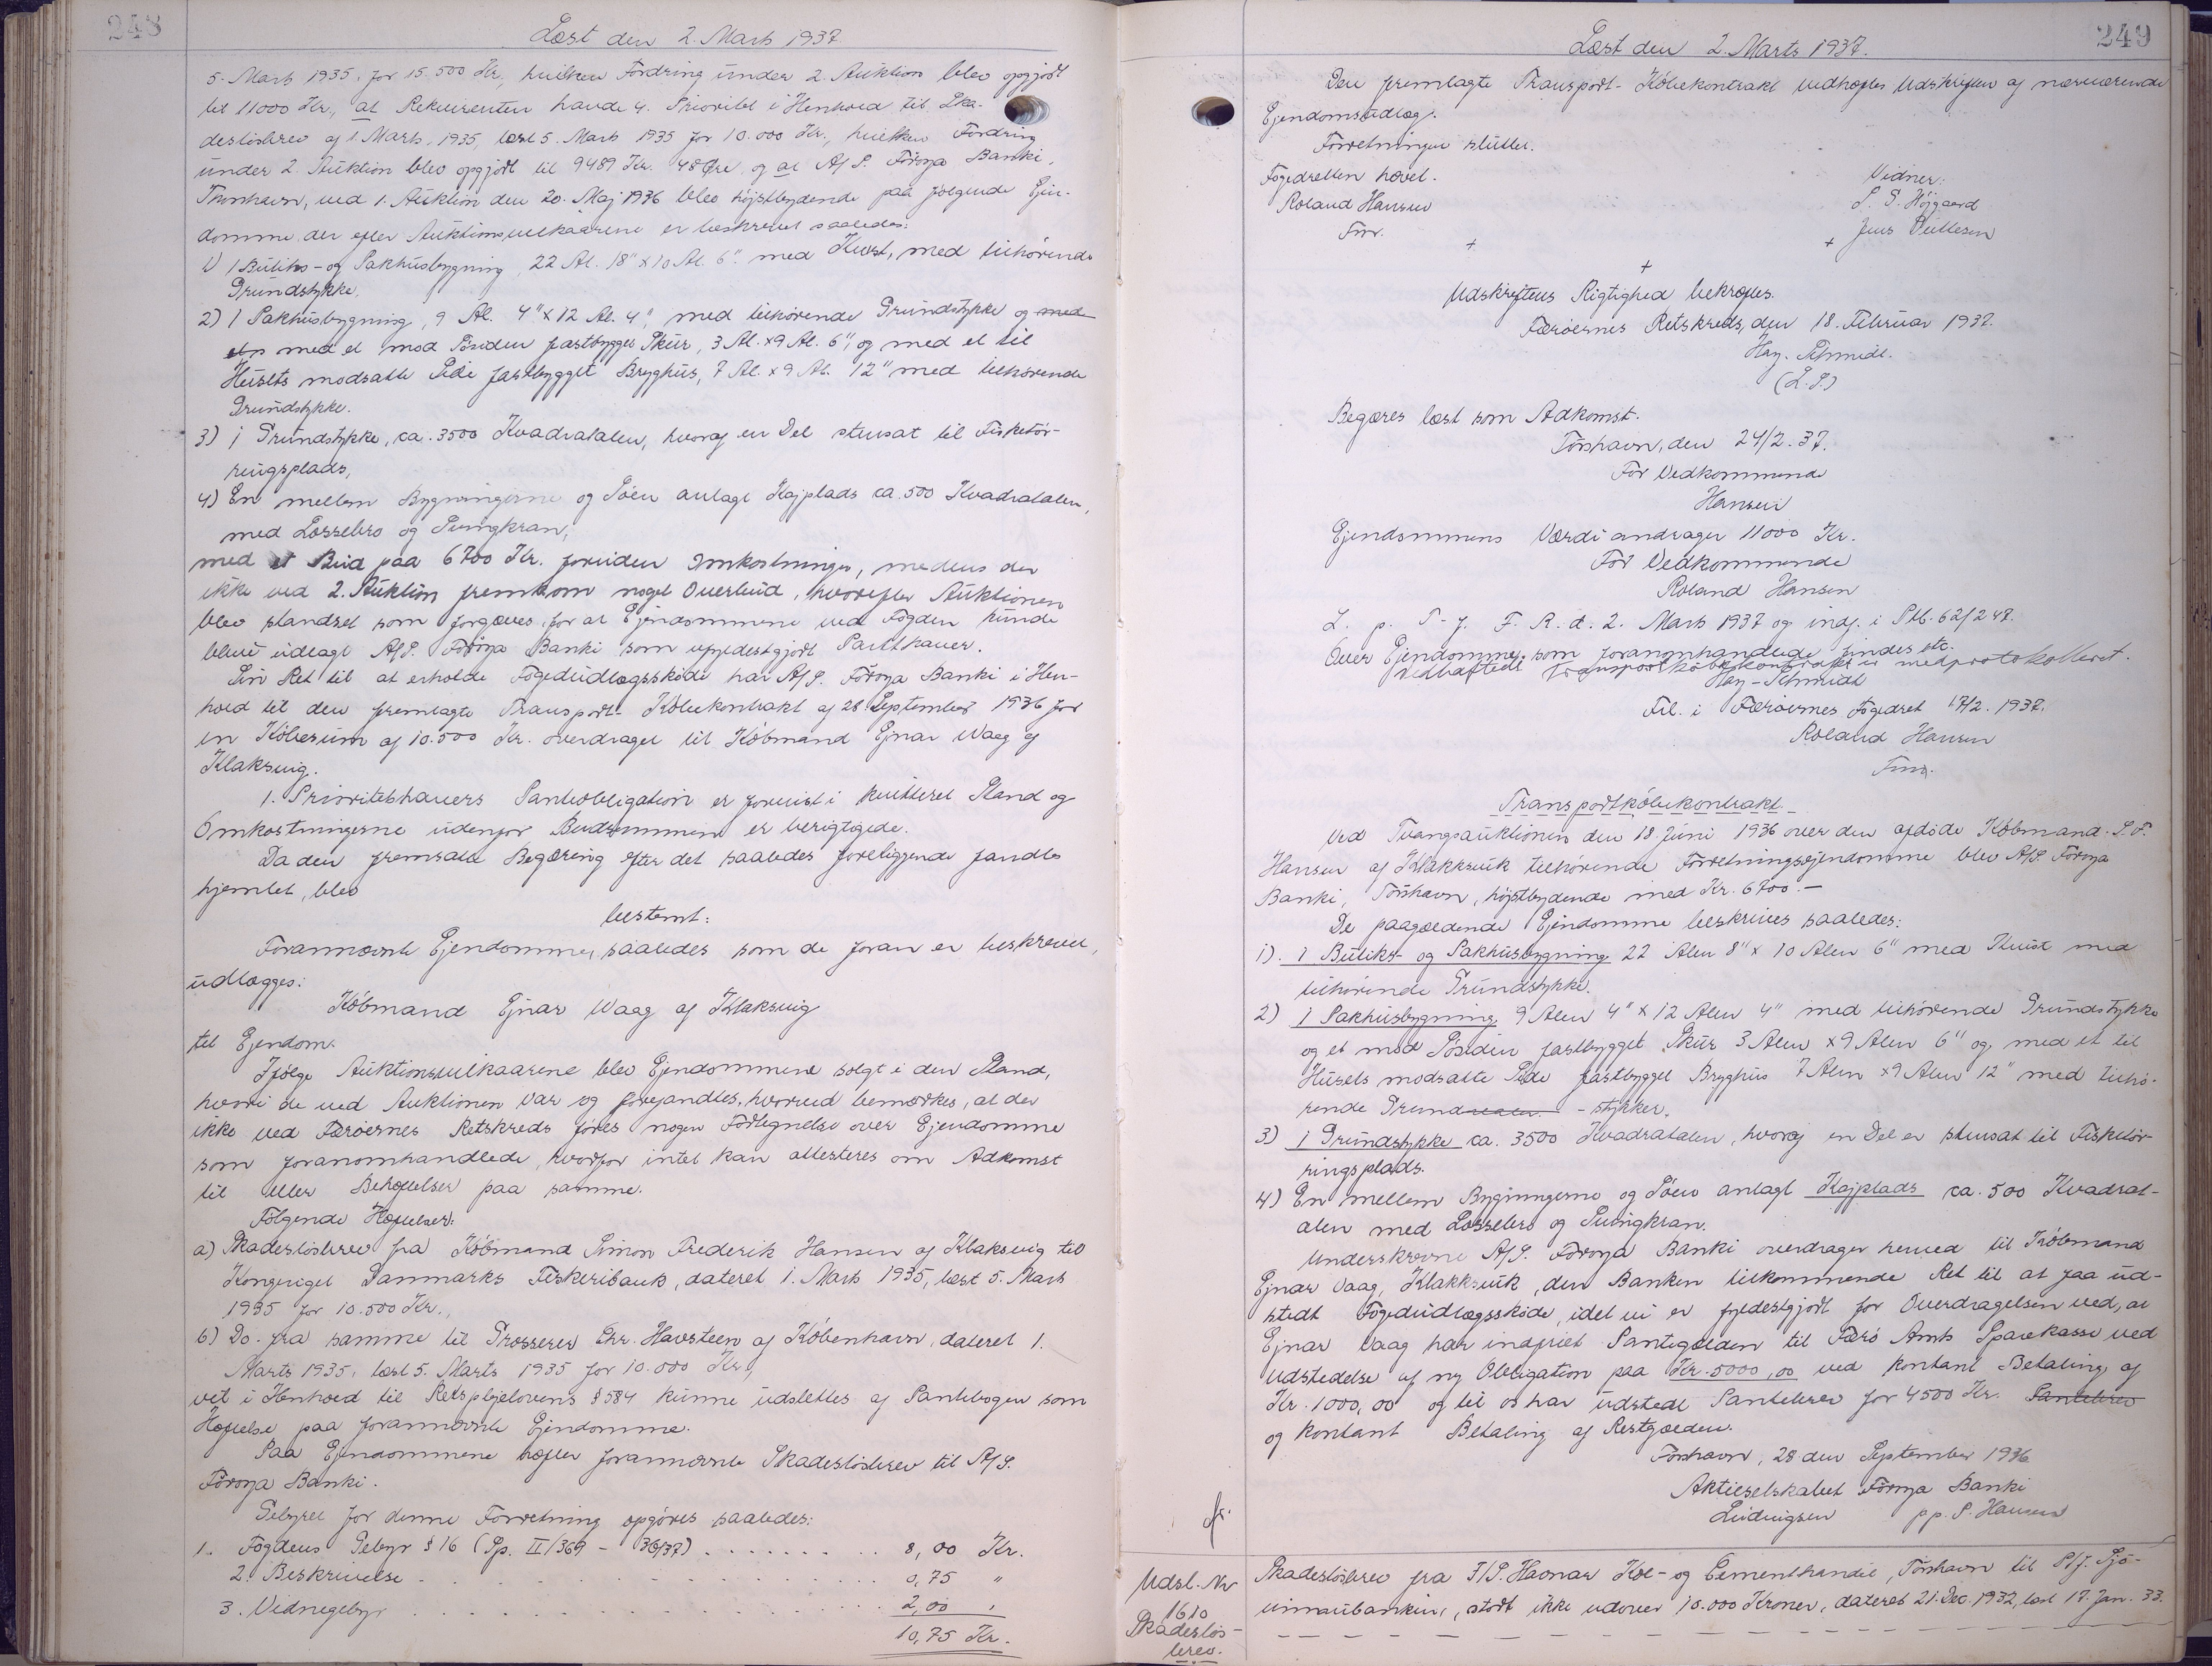 248
Læst den 2. Marts 1937.
5. Marts 1935, for 15.500 Kr., hvilken Fordring under 2. Auktion blev opgjort
til 11000 Kr., at Rekvirenten havde 4. Prioritet i Henhold til Ska-
desløsbrev af 1. Marts, 1935, læst 5. Marts 1935 for 10.000 Kr., hvilken Fordring
under 2. Auktion blev opgjort til 9489 Kr. 48 Øre og at A/S. Føroya Banki,
Thorshavn, ved 1. Auktion den 20. Maj 1936 blev højstbydende paa følgende Ejen-
domme, der efter Auktionsvilkaarene er beskrevet saaledes:
1) 1 Butiks- og Pakhusbygning, 22 Al. 18" x 10 Al. 6". med Kvist, med tilhørende
Grundstykke.
2) 1 Pakhusbygning, 9 Al. 4" x 12 Al. 4", med tilhørende Grundstykke og med
et med et mod Søsiden fastbygget Skur, 3 Al. x 9 Al. 6", og med et til
Husets modsatte Side fastbygget Bryghus, 7 Al. x 9 Al. 12" med tilhørende
Grundstykke.
3) 1 Grundstykke, ca. 3500 Kvadratalen, hvoraf en Del stensat til Fisketør-
ringsplads,
4) En mellem Bygningerne og Søen anlagt Kajplads ca. 500 Kvadratalen,
med Lossebro og Svingkran,
med et Bud paa 6700 Kr. foruden Omkostninger, medens der
ikke ved 2. Auktion fremkom noget Overbud, hvorefter Auktionen
blev standset som forgæves, for at Ejendommene ved Fogden kunde
blive udlagt A/S. Føroya Banki som ufyldestgjort Panthaver.
Sin Ret til at erholde Fogedudlægsskøde har A/S. Føroya Banki i Hen-
hold til den fremlagte Transport-Købekontrakt af 28. September 1936 for
en Købesum af 10.500 Kr. overdraget til Købmand Ejnar Waag af
Klaksvig.
1. Prioritetshavers Panteobligation er forevist i kvitteret Stand og
Omkostningerne udenfor Budsummen er berigtigede.
Da den fremsatte Begæring efter det saaledes foreliggende fandtes
hjemlet, blev
bestemt:
Forannævnte Ejendomme, saaledes som de foran er beskrevet,
udlægges:
Købmand Ejnar Waag af Klaksvig
til Ejendom.
Ifølge Auktionsvilkaarene blev Ejendommene solgt i den Stand,
hvori de ved Auktionen var og forefandtes, hvorved bemærkes, at der
ikke ved Færøernes Retskreds føres nogen Fortegnelse over Ejendomme
som foranomhandlede, hvorfor intet kan attesteres om Adkomst
til eller Behæftelser paa samme.
Følgende Hæftelser:
a) Skadesløsbrev fra Købmand Simon Frederik Hansen af Klaksvig til
Kongeriget Danmarks Fiskeribank, dateret 1. Marts 1935, læst 5. Marts
1935 for 10.500 Kr.,
b) Do. fra samme til Grosserer Chr. Havsteen af København, dateret 1.
Marts 1935, læst 5. Marts 1935 for 10.000 Kr.,
vil i Henhold til Retsplejelovens § 584 kunne udslettes af Pantebogen som
Hæftelse paa forannævnte Ejendomme.
Paa Ejendommene hæfter forannævnte Skadesløsbrev til A/S.
Føroya Banki.
Gebyret for denne Forretning opgøres saaledes:
1. Fogdens Gebyr § 16 (Sp. II/369 - 36/37) . . . . . . . . 8,00 Kr.
2. Beskrivelse . . . . . . . . . . . . 0,75 "
3. Vidnegebyr . . . . . . . . . . . . 2,00 "
10,75 Kr.
249
Læst den 2. Marts 1937.
Den fremlagte Transport-Købekontrakt vedhæftes Udskriften af nærværende
Ejendomsudlæg.
Forretningen sluttet.
Fogedretten hævet.
Vidner:
Roland Hansen
S. S. Højgaard
Fm.
Jens Poulsen
+ + +
Udskriftens Rigtighed bekræftes.
Færøernes Retskreds, den 18. Februar 1937.
Hay. Schmidt.
(L.S.)
Begæres læst som Adkomst.
Tórshavn, den 24/2. 37.
For Vedkommende
Hansen
Ejendommens Værdi andrager 11000 Kr.
For Vedkommende
Roland Hansen
L. p. T. f. F. R. d. 2. Marts 1937 og indf. i Skb. 62/247.
Over Ejendomme som foranomhandlede findes etc.
Vedhæftede Transportkøbekontrakt er medprotokolleret.
Hay-Schmidt
Frl. i Færøernes Fogedret 17/2. 1937.
Roland Hansen
Fm.
Transportkøbekontrakt.
Ved Tvangsauktionen den 18. Juni 1936 over den afdøde Købmand S. F.
Hansen af Klakksvik tilhørende Forretningsejendomme blev A/S Føroya
Banki, Tórshavn, højstbydende med Kr. 6700.-
De paagældende Ejendomme beskrives saaledes:
1). 1 Butiks- og Pakhusbygning 22 Alen 8" x 10 Alen 6" med Kvist med
tilhørende Grundstykke.
2) 1 Pakhusbygning 9 Alen 4" x 12 Alen 4" med tilhørende Grundstykke
og et mod Søsiden fastbygget Skur 3 Alen x 9 Alen 6" og med et til
Husets modsatte Side fastbygget Bryghus 7 Alen x 9 Alen 12" med tilhø-
rende Grund -stykker.
3) 1 Grundstykke ca. 3500 Kvadratalen, hvoraf en Del er stensat til Fisketør-
ringsplads.
4) En mellem Bygningerne og Søen anlagt Kajplads ca. 500 Kvadrat-
alen med Lossebro og Svingkran.
Underskrevne A/S. Føroya Banki overdrager herved til Købmand
Ejnar Vaag, Klakksvik, den Banken tilkommende Ret til at faa ud-
stedt Fogedudlægsskøde, idet vi er fyldestgjort for Overdragelsen ved, at
Ejnar Vaag har indfriet Pantegælden til Færø Amts Sparekasse ved
Udstedelse af ny Obligation paa Kr. 5000,00 ved kontant Betaling af
Kr. 1000,00 og til os har udstedt Pantebrev for 4500 Kr. Pantebrev
og kontant Betaling af Restgælden.
Tórshavn, 28 den September 1936
Aktieselskabet Føroya Banki
Ludvigsen pp. S. Hansen
Udsl. Nr
1610
Skadesløs-
brev.
Skadesløsbrev fra I/S. Havnar Kol- og Cementhandil, Tórshavn til P/f. Sjó-
vinnubankin, stort ikke udover 10.000 Kroner, dateret 21. Dec. 1932, læst 17. Jan. 33.